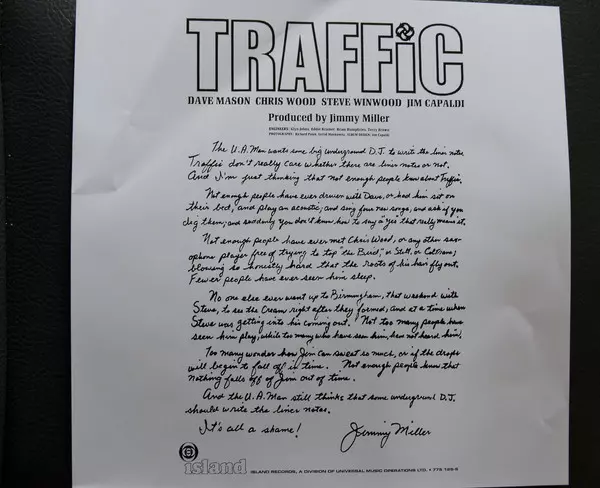 TRAFFiC
DAVE MASON CHRIS WOOD STEVE WINWOOD JIM CAPALDI
Produced by Jimmy Miller
ENGINEERS: Glyn Johns, Eddie Kramer, Brian Humphries, Terry Brown
The U.A. Man wants some big underground D.J. to write the liner notes
Traffic don't really care whether there are liner notes or not.
And I'm just thinking that not enough people know about Traffic.
Not enough people have ever driven with Dave, or had him sit on
their bed, and play an acoustic, and sing four new songs, and ask if you
dig them, and suddenly you don't know how to say a "yes" that really means it.
Not enough people have ever met Chris Wood, or any other sax-
ophone player free of trying to top "the Bird," or Stitt, or Coltrane;
blowing so honestly hard that the roots of his hair fly out.
Fewer people have ever seen him sleep.
No one else ever went up to Birmingham, that weekend with
Steve, to see the Cream right after they formed, and at a time when
Steve was getting into his coming out. Not too many people have
seen him play, while too many who have seen him, have not heard him.
Too many wonder how Jim can sweat so much, or if the drops
will begin to fall off in time. Not enough people know that
nothing falls off of Jim out of time.
And the U.A. Man still thinks that some underground D.J.
should write the liner notes.
It's all a shame! Jimmy Miller
island
ISLAND RECORDS, A DIVISION OF UNIVERSAL MUSIC OPERATIONS LTD. • 778 195-5